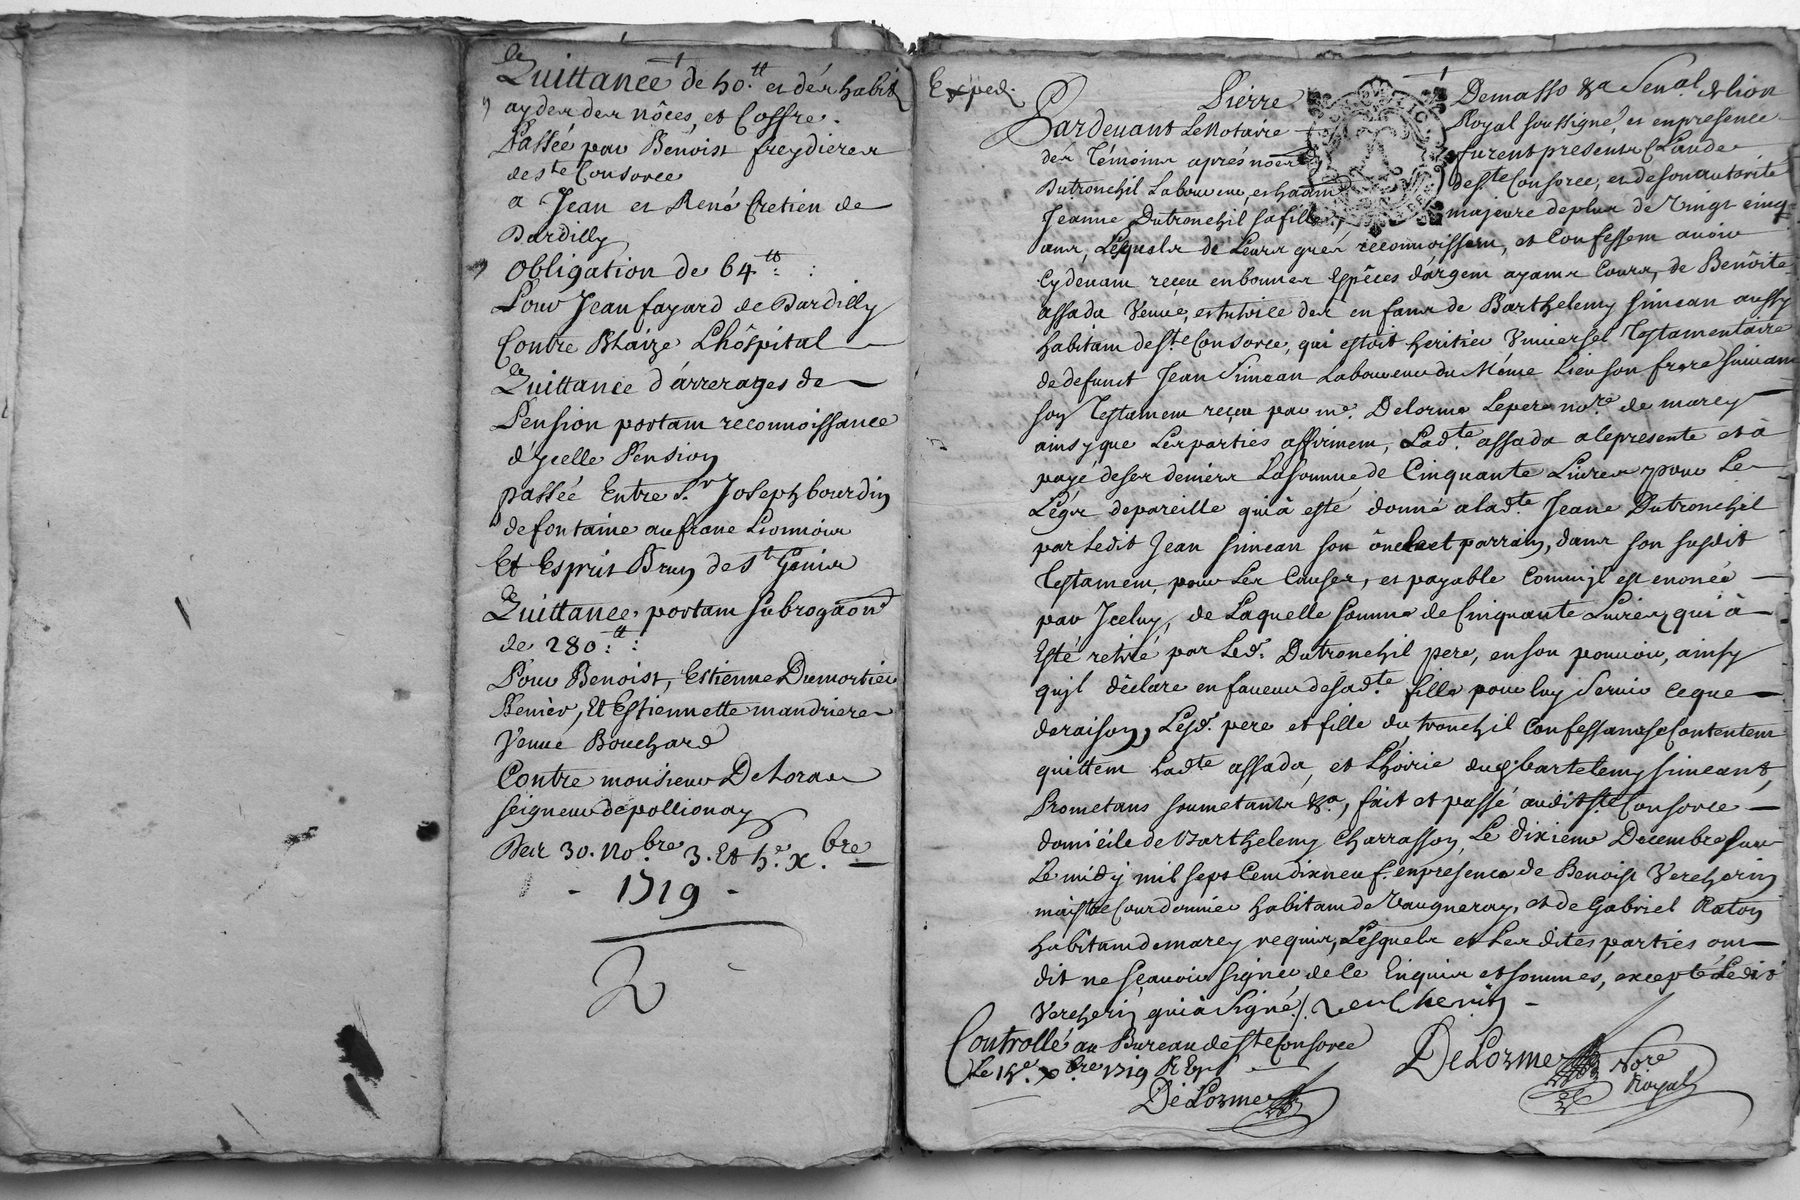 Quittance de 50.tt et des habits
ayder des nôces, et Coffre.
Passée par Benoist freydieres
de Ste Consorce
a Jean et René Cretien de
Dardilly
Obligation de 64tt :
Pour Jean fayard de Dardilly
Contre Blaize Lhôspital
Quittance d'arrerages de
Pension portant reconnoissance
d'ycelle Pension
passée Entre Sr Joseph bourdin
de fontaine au franc Lionnois
Et Esprit Brun de St Genis
Quittance, portant subrogaôn
de 280.tt :
Pour Benoist, Estienne Dumortier
Et Estiennette mandriere
Venue Bouchard
Contre monsieur De Loras
seigneur de pollionay
Des 30. No.bre 3. Et 5.e x.bre
- 1719 -
Exped.
Pardevant Le Notaire Royal soussigné, et en presence
des Témoins aprés nommés furent presents Claude
Dutronchil Laboureur, habitant de Ste Consorce, et de son autorité
Jeanne Dutronchil sa fille, majeure de plus de Vingt cinq
ans, Lesquels de Leurs grés reconnoissent, et Confessent avoir
Cydevant reçeu en bonnes Espêces d'argent ayant Cours, de Benôite
assada Veuve, et tutrice des enfans de Barthelemy simean aussy
habitant de Ste Consorce, qui estoit heritier Vniversel Testamentaire
de defunct Jean Simean Laboureur du Même Lieu son frere suivant
son Testament reçeu par me. Delorme Le pere nore. de marcy
ainsy que Les parties affirment, Ladte assada a le presente et à
payé de ses deniers La somme de Cinquante Livres pour Le
Légs de pareille qui à esté donné a ladte Jeane Dutronchil
par Ledit Jean simean son óncle et parrain, dans son susdit
Testament, pour Les Causes, et payable Comm'jl est enoncé
par Jceluy, de Laquelle somme de Cinquante Livres qui à
Esté retiré par Led. Dutronchil pere, en son pouvoir, ainsy
qu'jl déclare en faveur de sadte fille pour luy Servir ce que
de raison, Lesd. pere et fille du tronchil Confessants se Contentent
quittent Ladte assada, et L'hoirie dud. bartelemy simeant,
Prometans soumetants &a, fait et passé audit Ste Consorce
domicile de Barthelemy Charrasson, Le dixieme Decembre sur
Le midy mil sept Cent dix neuf, en presence de Benoist Vercherin
maistre Courdonnier habitant de Vaugneray, et de Gabriel Raton
habitant de marcy requis, Lesquels et Les dites parties ont
dit ne sçavoir signer de Ce Enquis et sommés, excepté Ledit
Vercherin qui à signé. Vercherin
Controllé au Bureau de Ste Consorce
Le 15e. xbre 1719
De Lorme
De Lorme Nore Royal